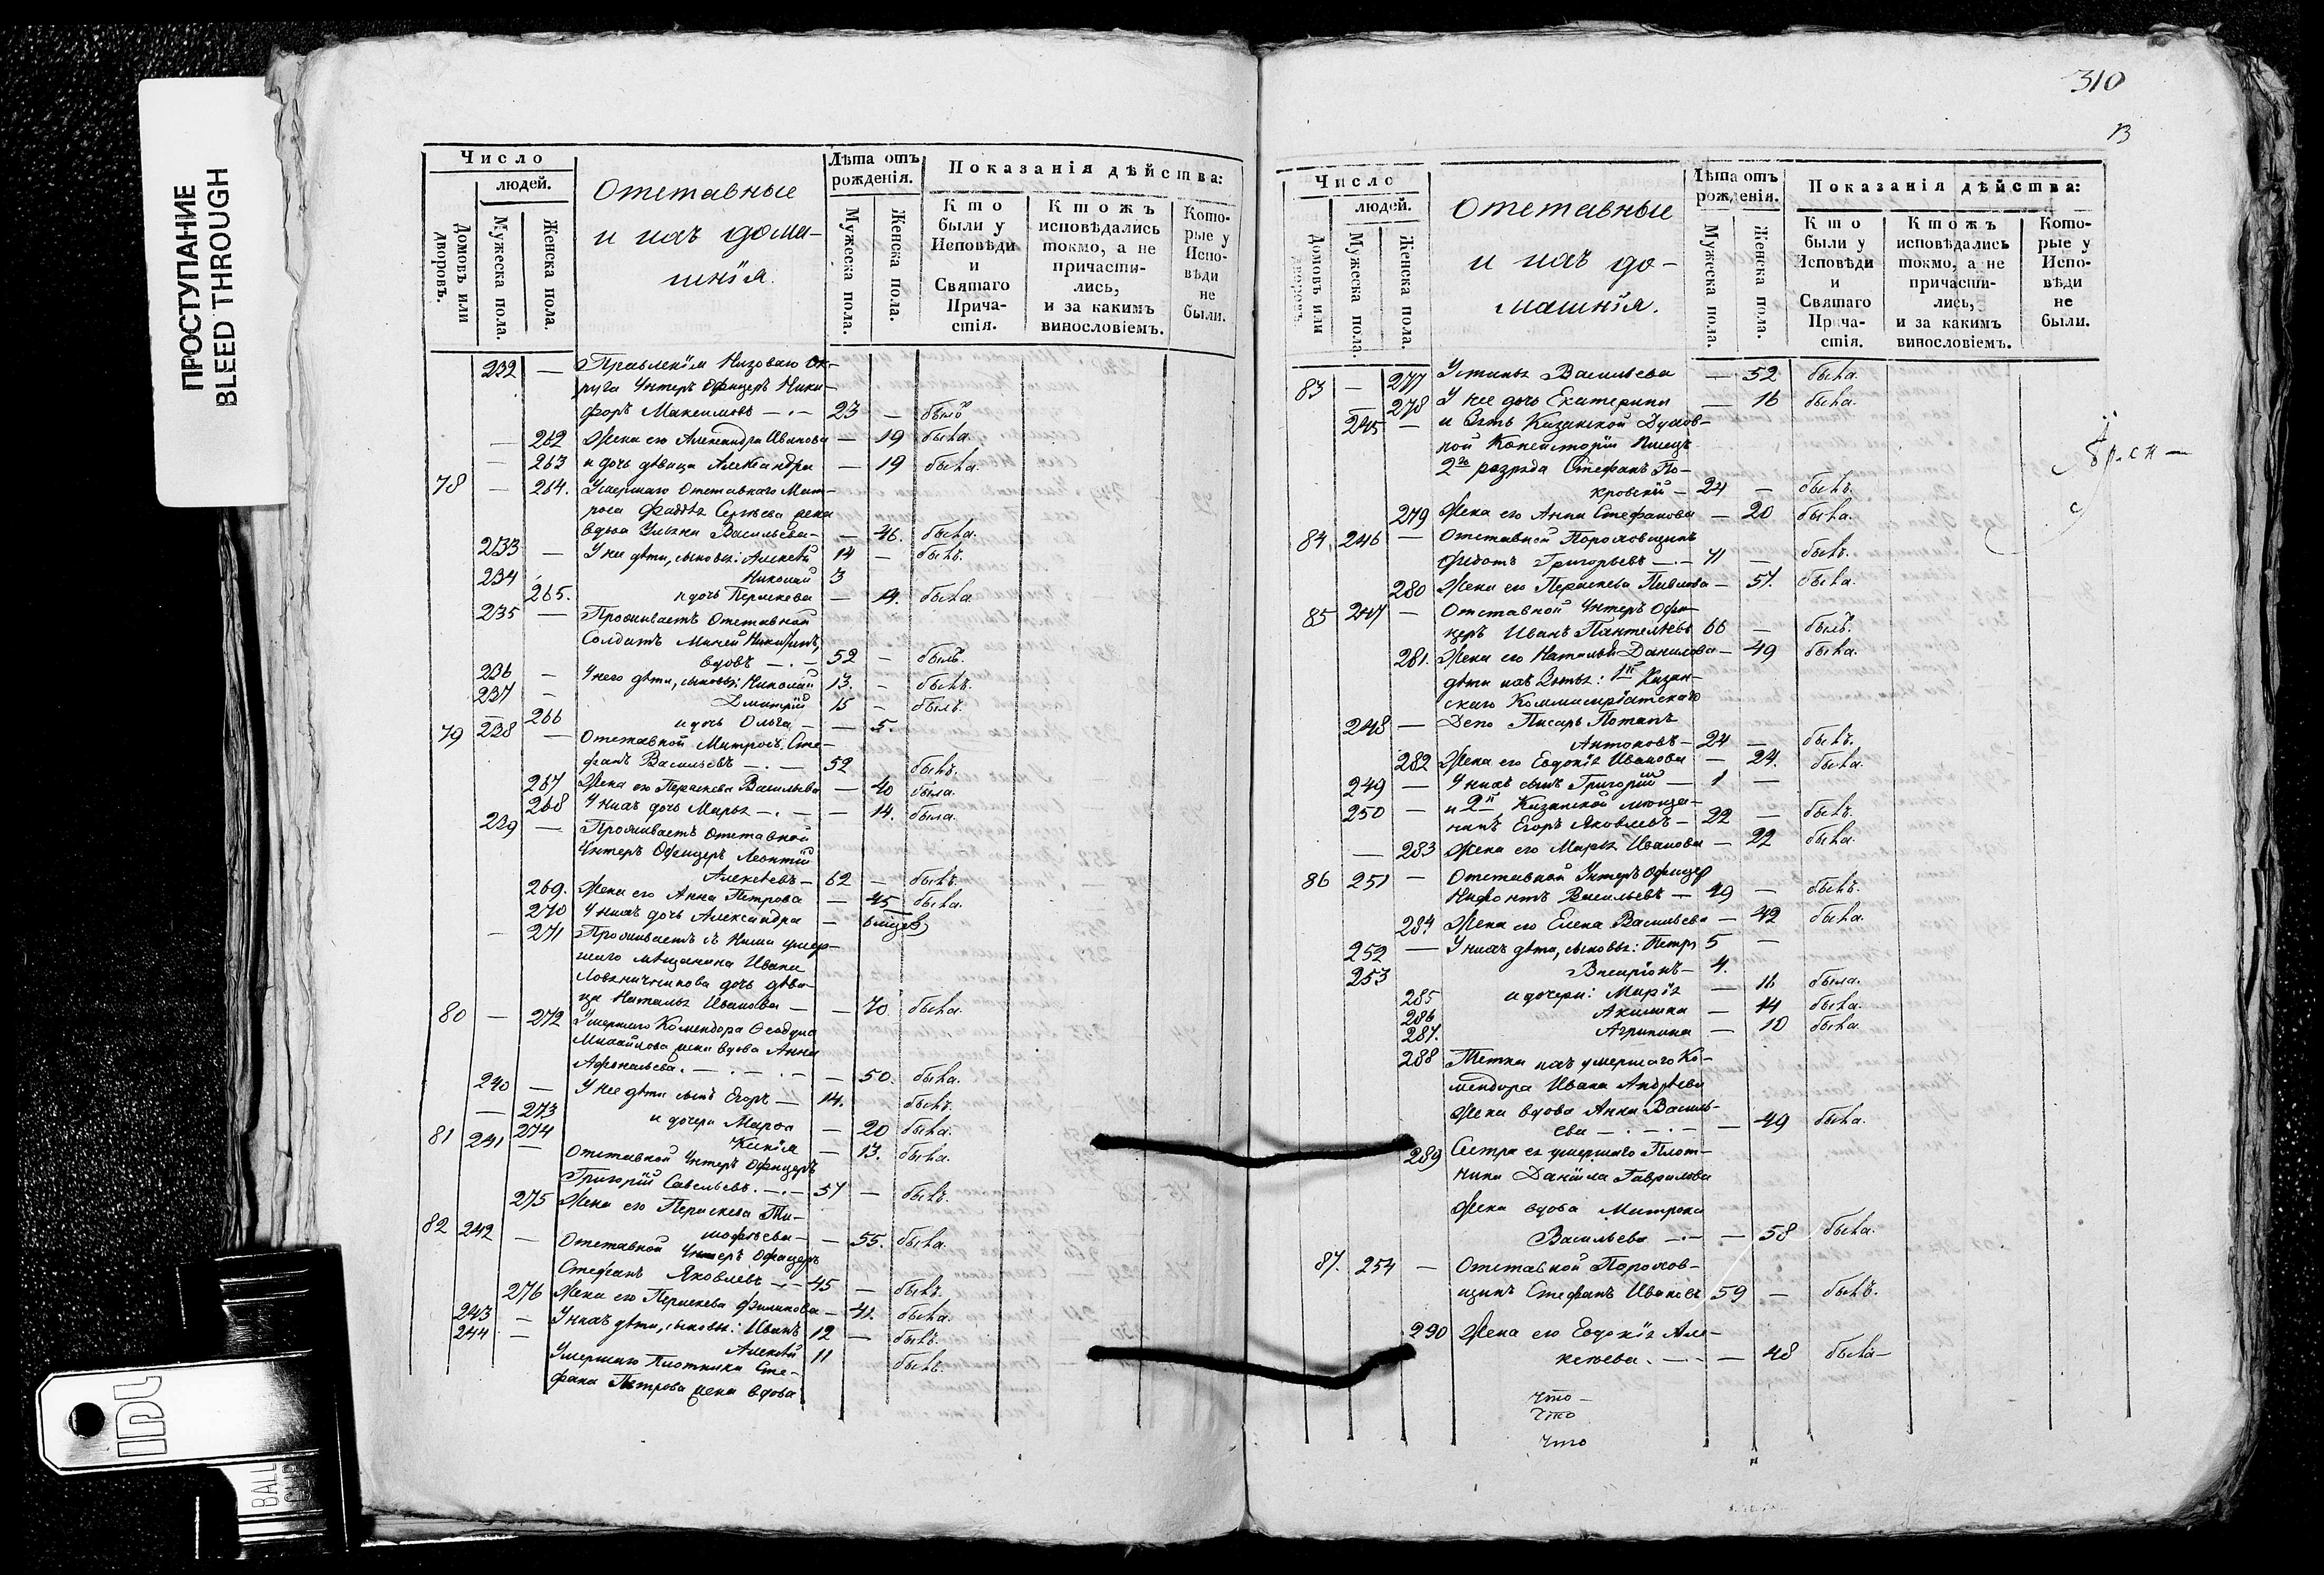 ПРОСТУПАНИЕ
BLEED THROUGH
Число
людей.
Домовъ или дворовъ.
Мужеска пола.
Женска пола.
Отставные
и ихъ дома-
шнія.
Лѣта отъ
рожденія.
Мужеска пола.
Женска пола.
Показанія дѣйства:
Кто были у Исповѣди и Святаго Прича-стія.
Ктожъ исповѣдались токмо, а не причасти-лись, и за какимъ винословіемъ.
Кото-рые у Испо-вѣди не были.
232 — Правленія Низоваго Ок-
руга Унтеръ Офицеръ Ники-
форъ Максимовъ — 23 — былъ
— 262 Жена его Александра Иванова — 19 была.
— 263 и дочь дѣвица Александра — 19 была.
78 — 264. Умершаго Отставнаго Мат-
роса Фаддѣя Сергѣева жена
вдова Ульяна Васильева — — 46. была.
233 — У нее дѣти, сыновья: Алексѣй 14 — былъ.
234 Николай 3
265. и дочь Пераскева — 9. была
235 — Проживаетъ Отставной
Солдатъ Миней
вдовъ — 52 — былъ.
236 — У него дѣти, сыновья: Николай 13. — былъ.
237 — Дмитрій 15 — былъ.
— 266 и дочь Ольга — — 5.
79 238 — Отставной Матросъ Сте-
фанъ Васильевъ — 52 былъ.
267 Жена его Пераскева Васильева — 40 была.
268 У нихъ дочь Марья — — 14. была.
239 — Проживаетъ Отставной
Унтеръ Офицеръ Леонтій
Алексѣевъ — 62 — былъ.
269. Жена его Анна Петрова — 45 была.
270 У нихъ дочь Александра — 6 мѣсяц
— 271 Проживаетъ съ Ними умер-
шаго мѣщанина Ивана
дочь дѣви-
ца Наталья Иванова — — 70 была.
80 — 272 Умершаго Комендора Ѳеодула
Михайлова жена вдова Анна
Афонасьева. — — 50. была.
240 — У нее дѣти сынъ Егоръ — 14. былъ.
— 273 и дочери Марѳа — 20 была.
274 Ксенія — 13. была.
81 241 — Отставной Унтеръ Офицеръ
Григорій Савельевъ. — 57 — былъ.
275 Жена его Пераскева Ти-
мофѣева — — 55. была.
82 242 — Отставной Унтеръ Офицеръ
Стефанъ Яковлевъ — 45 — былъ.
276 Жена его Пераскева Филипова — 41. была.
243 — У нихъ дѣти, сыновья: Иванъ 12 — былъ.
244 — Алексѣй 11 былъ.
Умершаго Плотника Сте-
фана Петрова жена вдова
310
13
Число
людей.
Домовъ или дворовъ.
Мужеска пола.
Женска пола.
Отставные
и ихъ до-
машнія.
Лѣта отъ
рожденія.
Мужеска пола.
Женска пола.
Показанія дѣйства:
Кто были у Исповѣди и Святаго Прича-стія.
Ктожъ исповѣдались токмо, а не причасти-лись, и за какимъ винословіемъ.
Кото-рые у Испо-вѣди не были.
83 — 277 Устинья Васильева — 52 была.
— 278 У нее дочь Екатерина — 16 была.
245 — и Зять Казанской Духов-
ной Консисторіи Писецъ
2го разряда Стефанъ По-
кровскій — 24 — былъ.
279 Жена его Анна Стефанова — 20 была.
84. 246 — Отставной Пороховщикъ
Федотъ Григорьевъ — 71 — былъ.
280 Жена его Пераскева Павлова — 57. была.
85 247 — Отставной Унтеръ Офи-
церъ Иванъ Пантелѣевъ 66 — былъ.
281. Жена его Наталья Данилова — 49 была.
дѣти ихъ Зятья: 1й Казан-
скаго Коммисаріатскаго
248 — Депо Писарь Потапъ
Антоновъ — 24 — былъ.
282 Жена его Евдокія Иванова — 24. была.
249 — У нихъ сынъ Григорій — 1 —
250 — и 2й Казанской мѣща-
нинъ Егоръ Яковлевъ — 22 — былъ.
— 283 Жена его Марья Иванова — 22 была.
86 251 — Отставной Унтеръ Офицер
Нифонтъ Васильевъ — 49 — былъ.
284 Жена его Елена Васильева — 42 была.
252 — У нихъ дѣти, сыновья: Петръ 5 —
253 Висаріонъ — 4.
285 и дочери: Марія — 16 была.
286 Акилина — 14 была.
287. Агрипина — 10 была.
288 Тетка ихъ умершаго Ко-
мендора Ивана Андрѣева
Жена вдова Анна Василь-
ева — — 49 была.
289 Сестра ея умершаго Плот-
ника Даніила Гаврилова
Жена вдова Матрона
Васильева — — 58 была.
87. 254 — Отставной Порохов-
щикъ Стефанъ Ивановъ 59 — былъ.
290 Жена его Евдокія Але-
ксѣева. — — 48 была —
что —
что
что